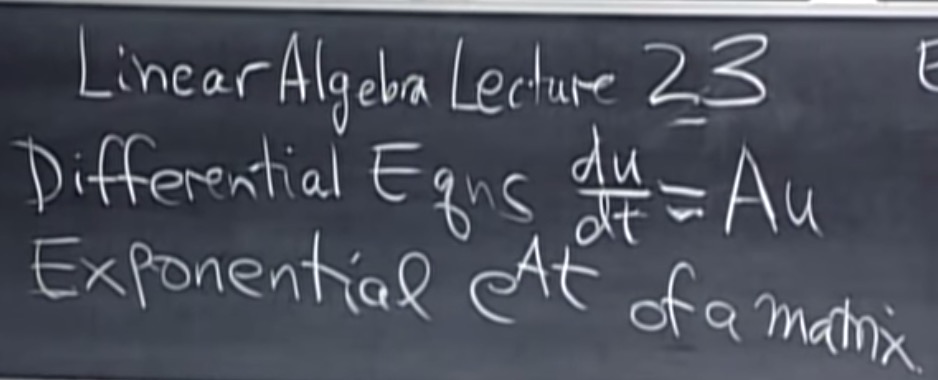 Linear Algebra Lecture 23
Differential Eqns du/dt = Au
Exponential e^At of a matrix.